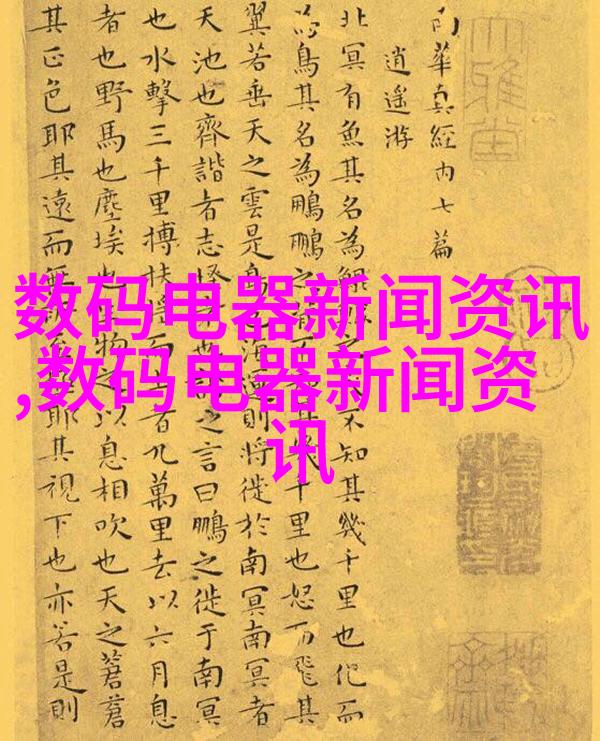 南華真經内七篇
逍遥游
北冥有魚其名為鯤之不知其幾千里也化而
為鳥其名為鵬鵬之背千里也怒而飛其
翼若垂天之雲是鳥海運則將徙於南冥南冥者
天池也齊諧者志怪之言曰鵬之徙于南冥
也水擊三千里搏扶搖而者九萬里去以六月息
者也野馬也塵埃也物之以息相吹也天之蒼蒼
其正色耶其遠而無耶其視下也亦若是則
数码电器新闻资讯
,数码电器新闻资
讯